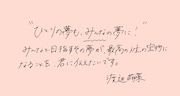 "ひとりの夢も、みんなの夢に!"
みんなで目指すその夢が、最高の人生の宝物に
なることを 君に伝えたいです。
渡辺